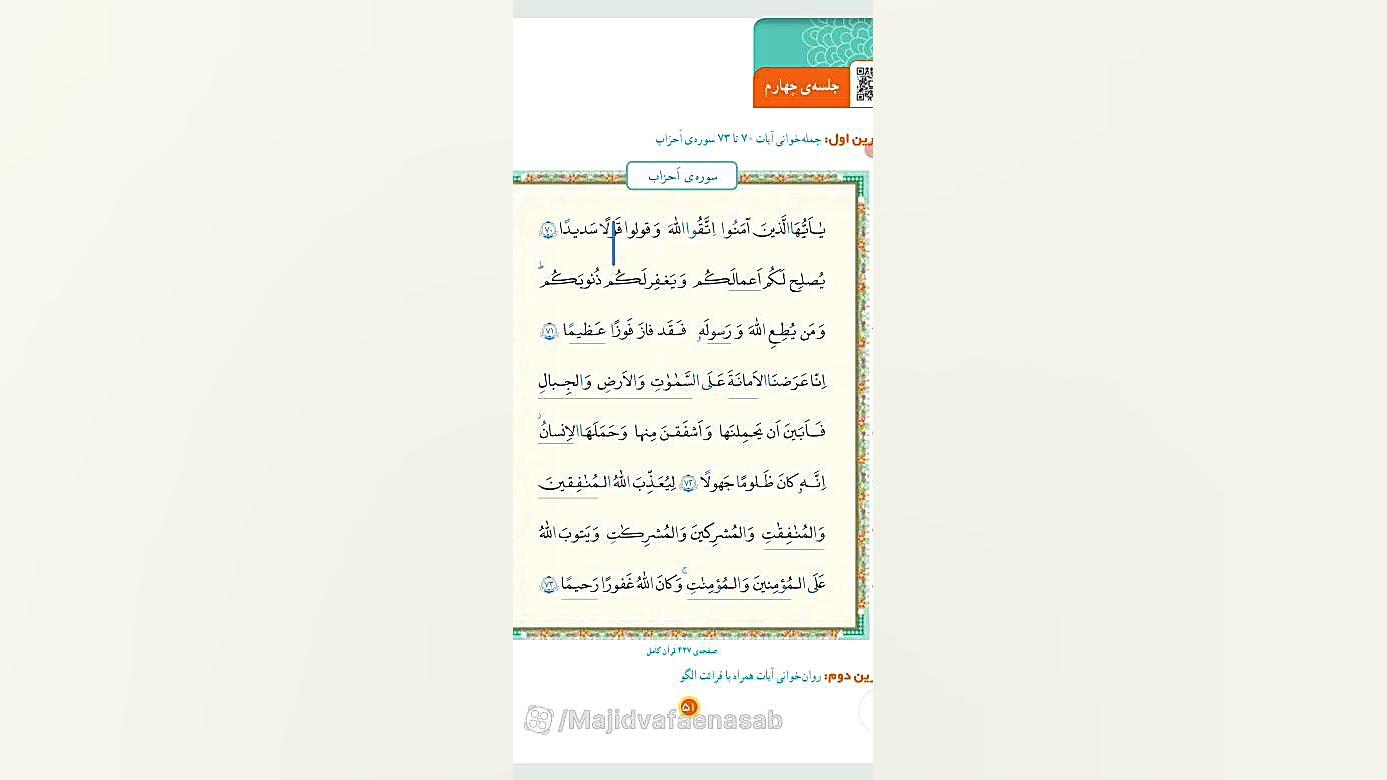 جلسه‌ی چهارم
رین اول: جمله‌خوانی آیات ۷۰ تا ۷۳ سوره‌ی اَحزاب
سوره‌ی اَحزاب
یٰـاَیُّهَا الَّذینَ آمَنُوا اتَّقُوا اللّٰهَ وَ قولوا قَولًا سَدیدًا ﴿۷۰﴾
یُصلِح لَکُم اَعمالَکُم وَ یَغفِر لَکُم ذُنوبَکُم ؕ
وَ مَن یُطِعِ اللّٰهَ وَ رَسولَهٗ فَقَد فازَ فَوزًا عَظیمًا ﴿۷۱﴾
اِنّا عَرَضنَا الاَمانَةَ عَلَی السَّمٰوٰتِ وَ الاَرضِ وَ الجِبالِ
فَاَبَینَ اَن یَحمِلنَها وَ اَشفَقنَ مِنها وَ حَمَلَهَا الاِنسانُ ۖ
اِنَّهٗ کانَ ظَلومًا جَهولًا ﴿۷۲﴾ لِیُعَذِّبَ اللّٰهُ المُنٰفِقینَ
وَ المُنٰفِقٰتِ وَ المُشرِکینَ وَ المُشرِکٰتِ وَ یَتوبَ اللّٰهُ
عَلَی المُؤمِنینَ وَ المُؤمِنٰتِ ۚ وَ کانَ اللّٰهُ غَفورًا رَحیمًا ﴿۷۳﴾
صفحه‌ی ۴۲۷ قرآن کامل
رین دوم: روان‌خوانی آیات همراه با قرائت الگو
۵۱
/Majidvafaenasab